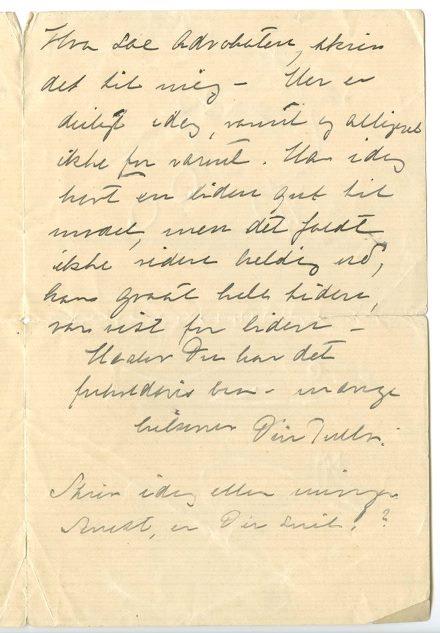 Hva sae Advokaten, skriv
det til mig – Her er
deiligt idag, varmt og alligevel
ikke for varmt. Har idag
havt en liden gut til
model, men det faldt
ikke videre heldig ud,
han graat hele tiden,
var vist for liden –
Haaber Du har det
forholdsvis bra – mange
hilsener Din
Skriv idag eller
er Du snil. ?